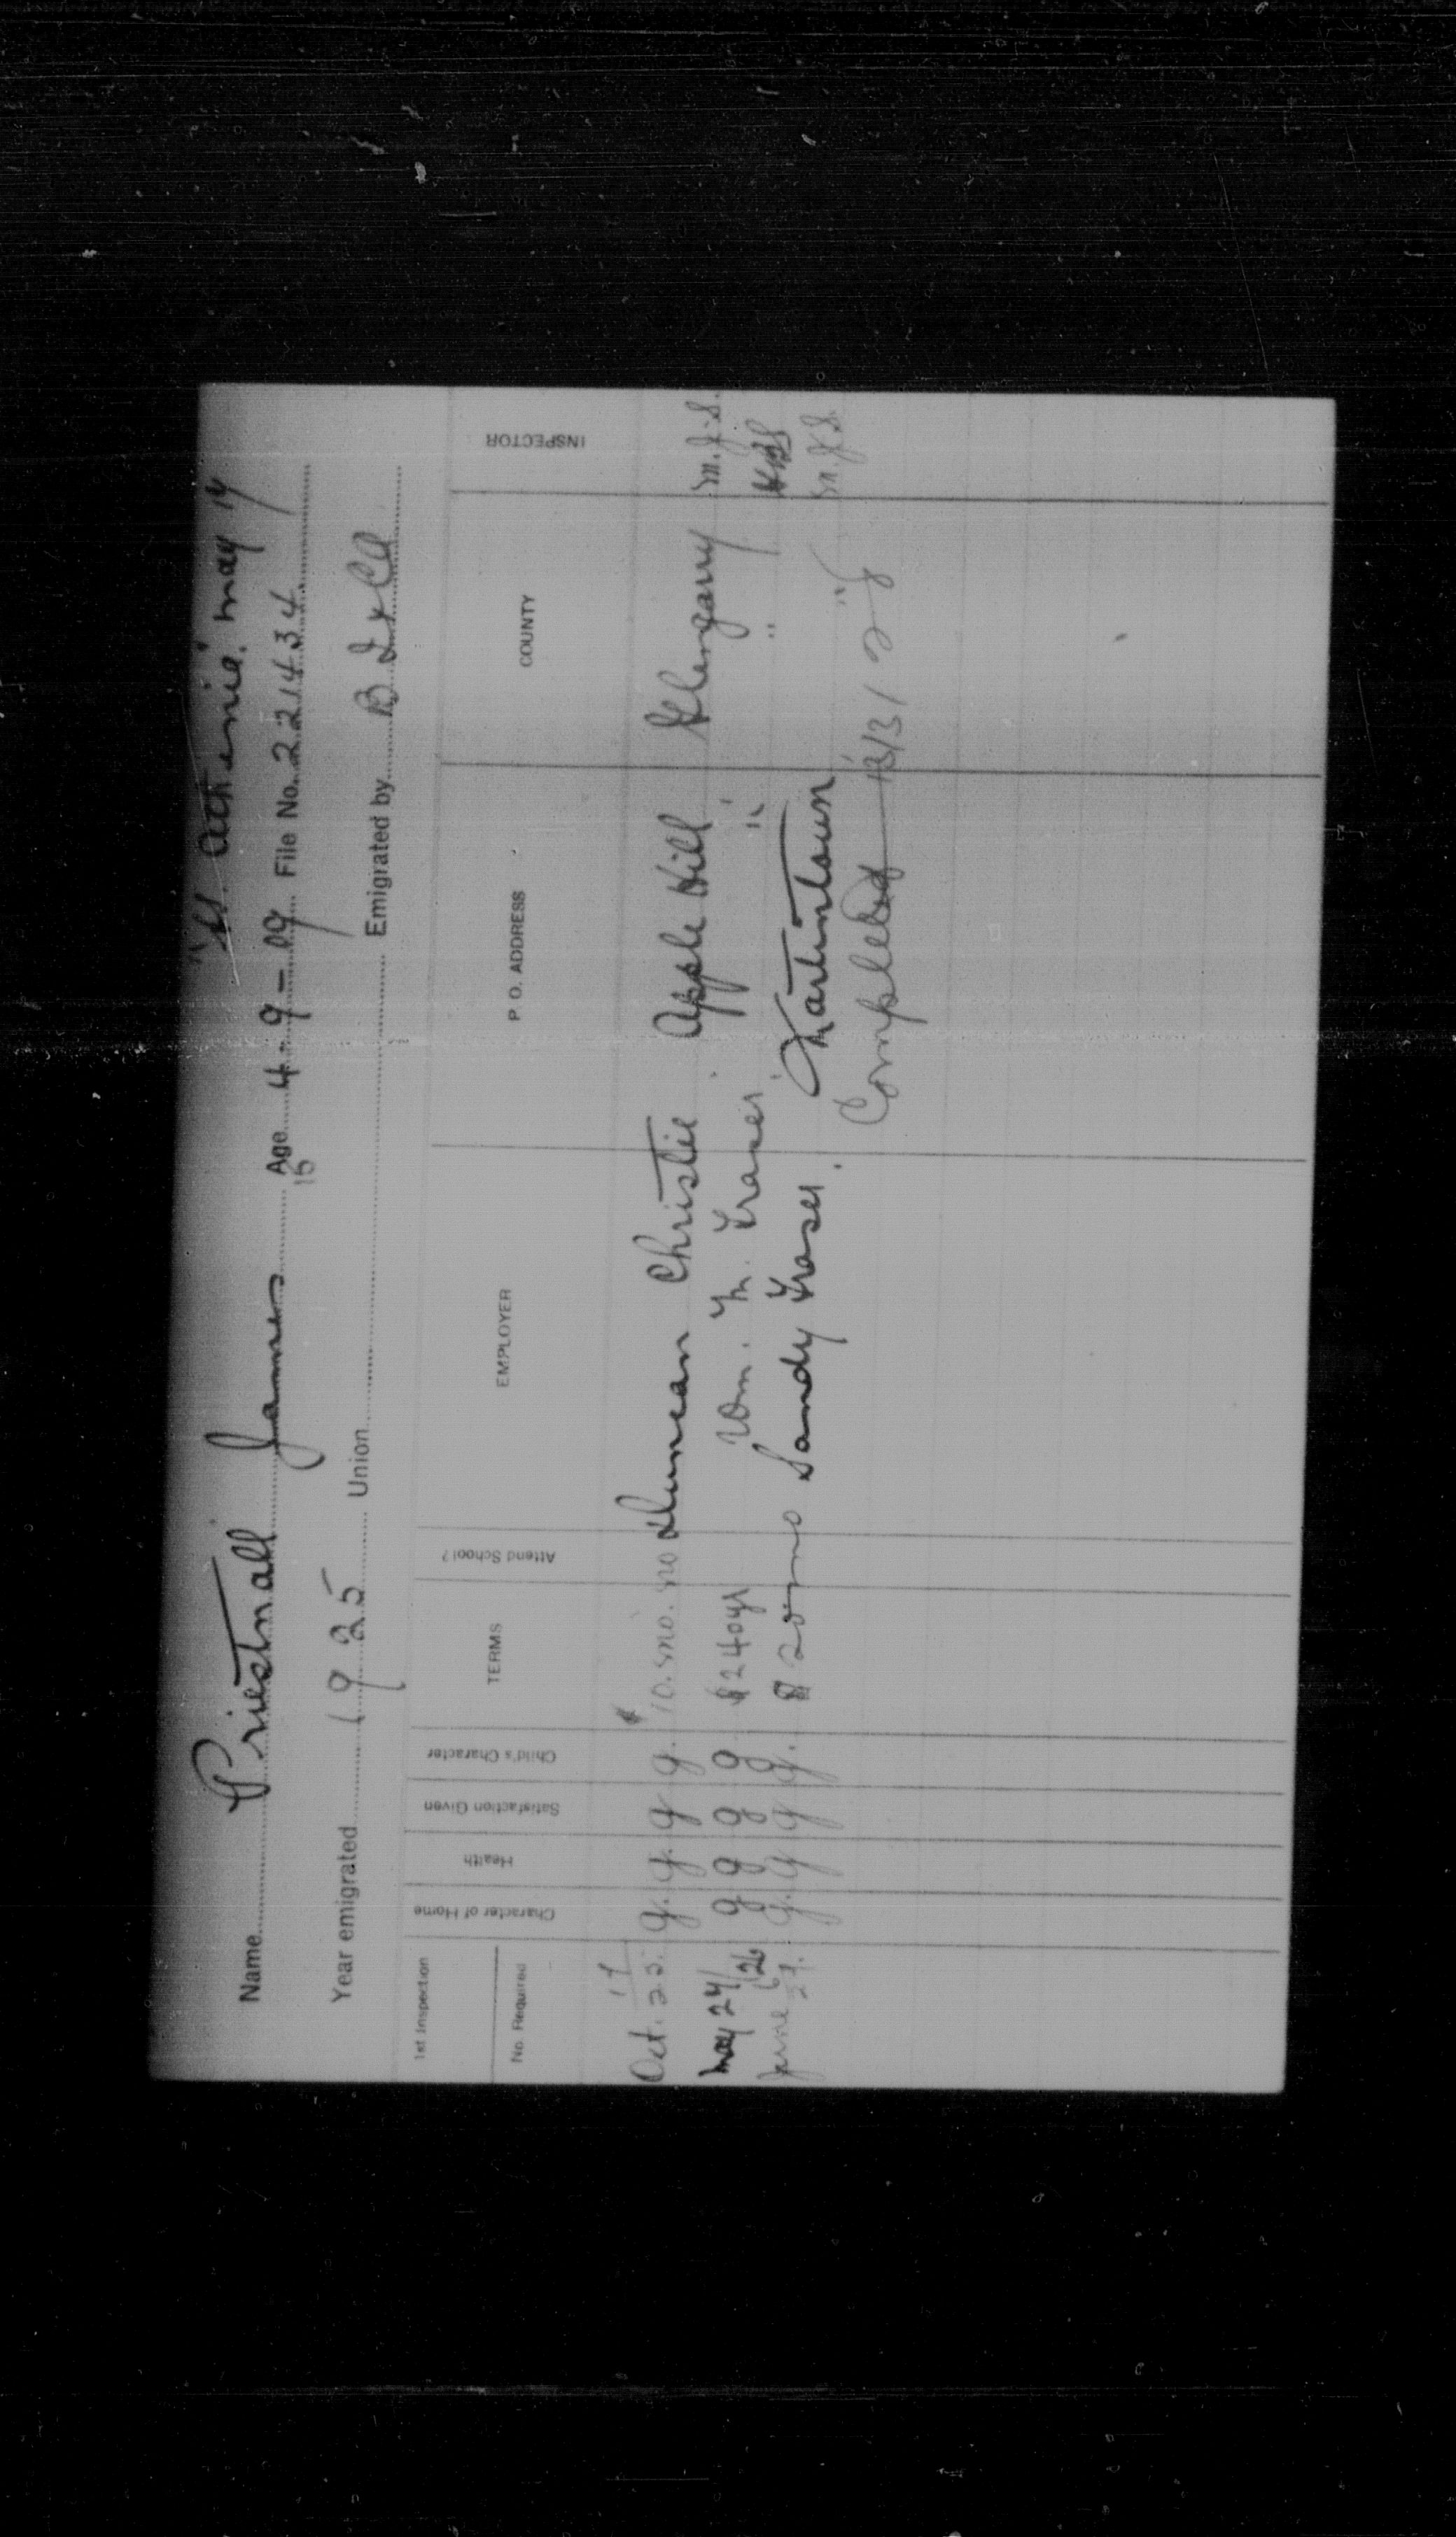 "SS. Athenia" May 14
Name Priestnall James Age 4-9-09 File No. 221434
15
Year emigrated 1925 Union Emigrated by B. I. & CA
1st Inspection
No. Required
Character of Home Health Satisfaction Given Child's Character TERMS Attend School? EMPLOYER P. O. ADDRESS COUNTY INSPECTOR
Oct. 17 25. g. g. g g. $10. mo. no Duncan Christie Apple Hill Glengarry M.J.S.
May 24/26 g g g g $240 yr Wm. M. Fraser " "
June 27. g. g g g. $20 mo Sandy Fraser. Martintown " M.J.S.
Completed